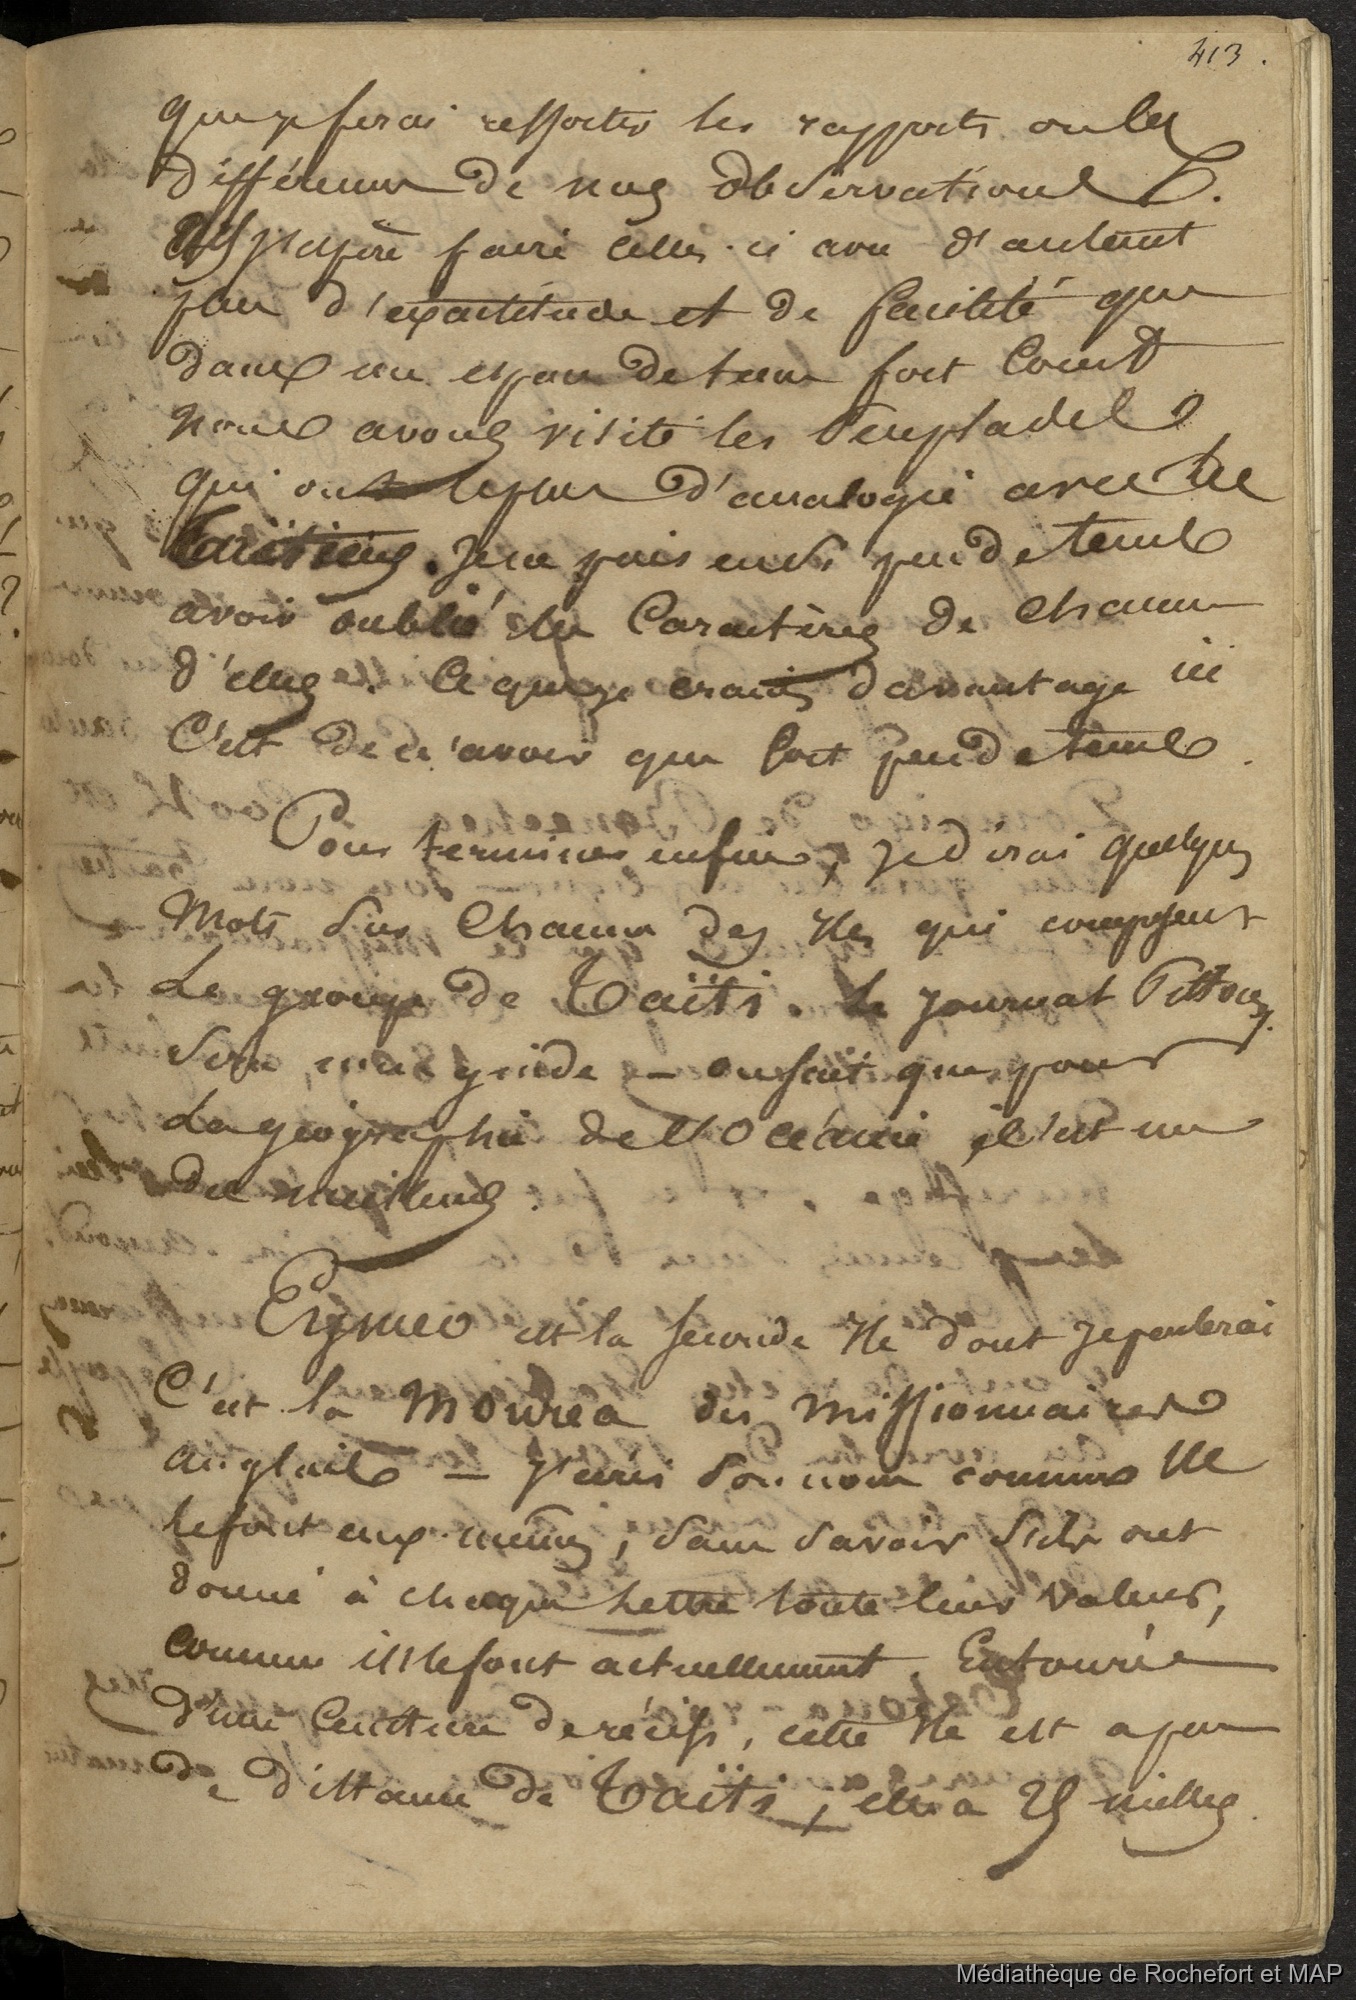 413.
que je ferai ressortir les rapports ou les
différences de nos observations
j'espère faire celles-ci avec d'autant
plus d'exactitude et de facilité que
dans un espace de tems fort court
nous avons visité les Peuplades
qui ont le plus d'analogie avec les
Taïtiens. Je ne puis en si peu de tems
avoir oublié les Caractères de chacune
d'elles. Ce que je crains davantage ici
C'est de n'avoir que fort peu de tems.
Pour terminer enfin, je dirai quelques
Mots sur Chacune des Iles qui composent
Le groupe de Taïti. Le Journal Pittoresq.
sera mon guide — on sait que pour
La géographie de l'Océanie, il est un
des meilleurs.
Eymeo est la seconde Ile dont je parlerai
C'est la Mourea des Missionnaires
anglais — J'écris son nom comme Ils
le font eux-mêmes, sans savoir s'ils ont
donné à chaque Lettre toute leur valeur,
comme ils le font actuellement. Entourée
d'une Ceinture de récifs, cette Ile est a peu
de distance de Taïti; elle a 25 milles
Médiathèque de Rochefort et MAP